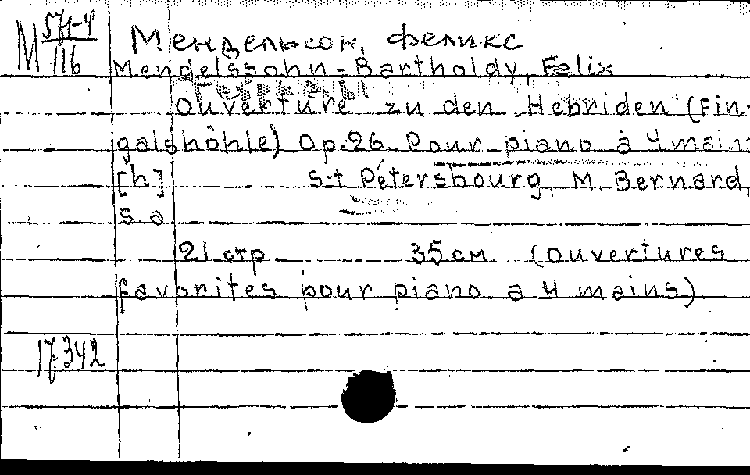 М 571-4/116
Мендельсон, Феликс
Mendelssohn-Bartholdy, Felix
Ouverture zu den Hebriden (Fin-
galshöhle) Op.26. Pour piano à 4 mains
[h] St Pétersbourg, M. Bernard,
s.a
21 стр 35 см (Ouvertures
favorites pour piano a 4 mains)
17342